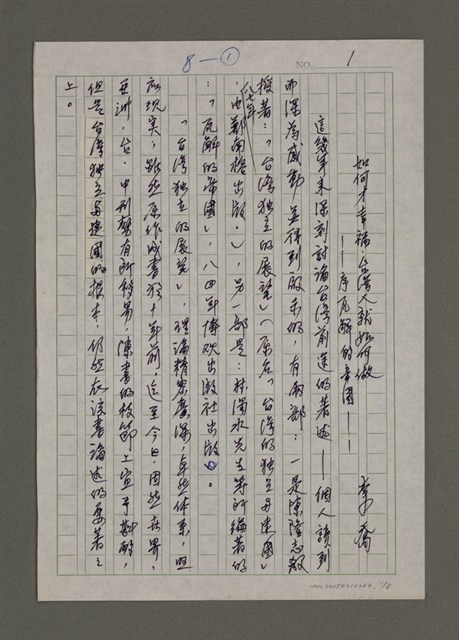 8—①
NO. 1
如何才幸福,台灣人就如何做
——序瓦解的帝國——
李喬
這幾年來深刻討論台灣前途的著述——個人讀到
而深為感動並得到啟示的,有兩部:一是陳隆志教
授著:「台灣獨立的展望」(原名「台灣的獨立與建國」
八七年由鄭南榕出版。),另一部是:林濁水先生等所編著的
:「瓦解的帝國」,八四年博歡出版社出版。
「台灣獨立的展望」,理論精宏畫深,自然體系,照
應現實,雖然原作成書於十年前,迄至今日,固然世界、
亞洲、台、中形勢有所移易,陳書的枝節上宜予斟酌,
但是台灣獨立與建國的根本,仍然在該書論述的要著之
上。